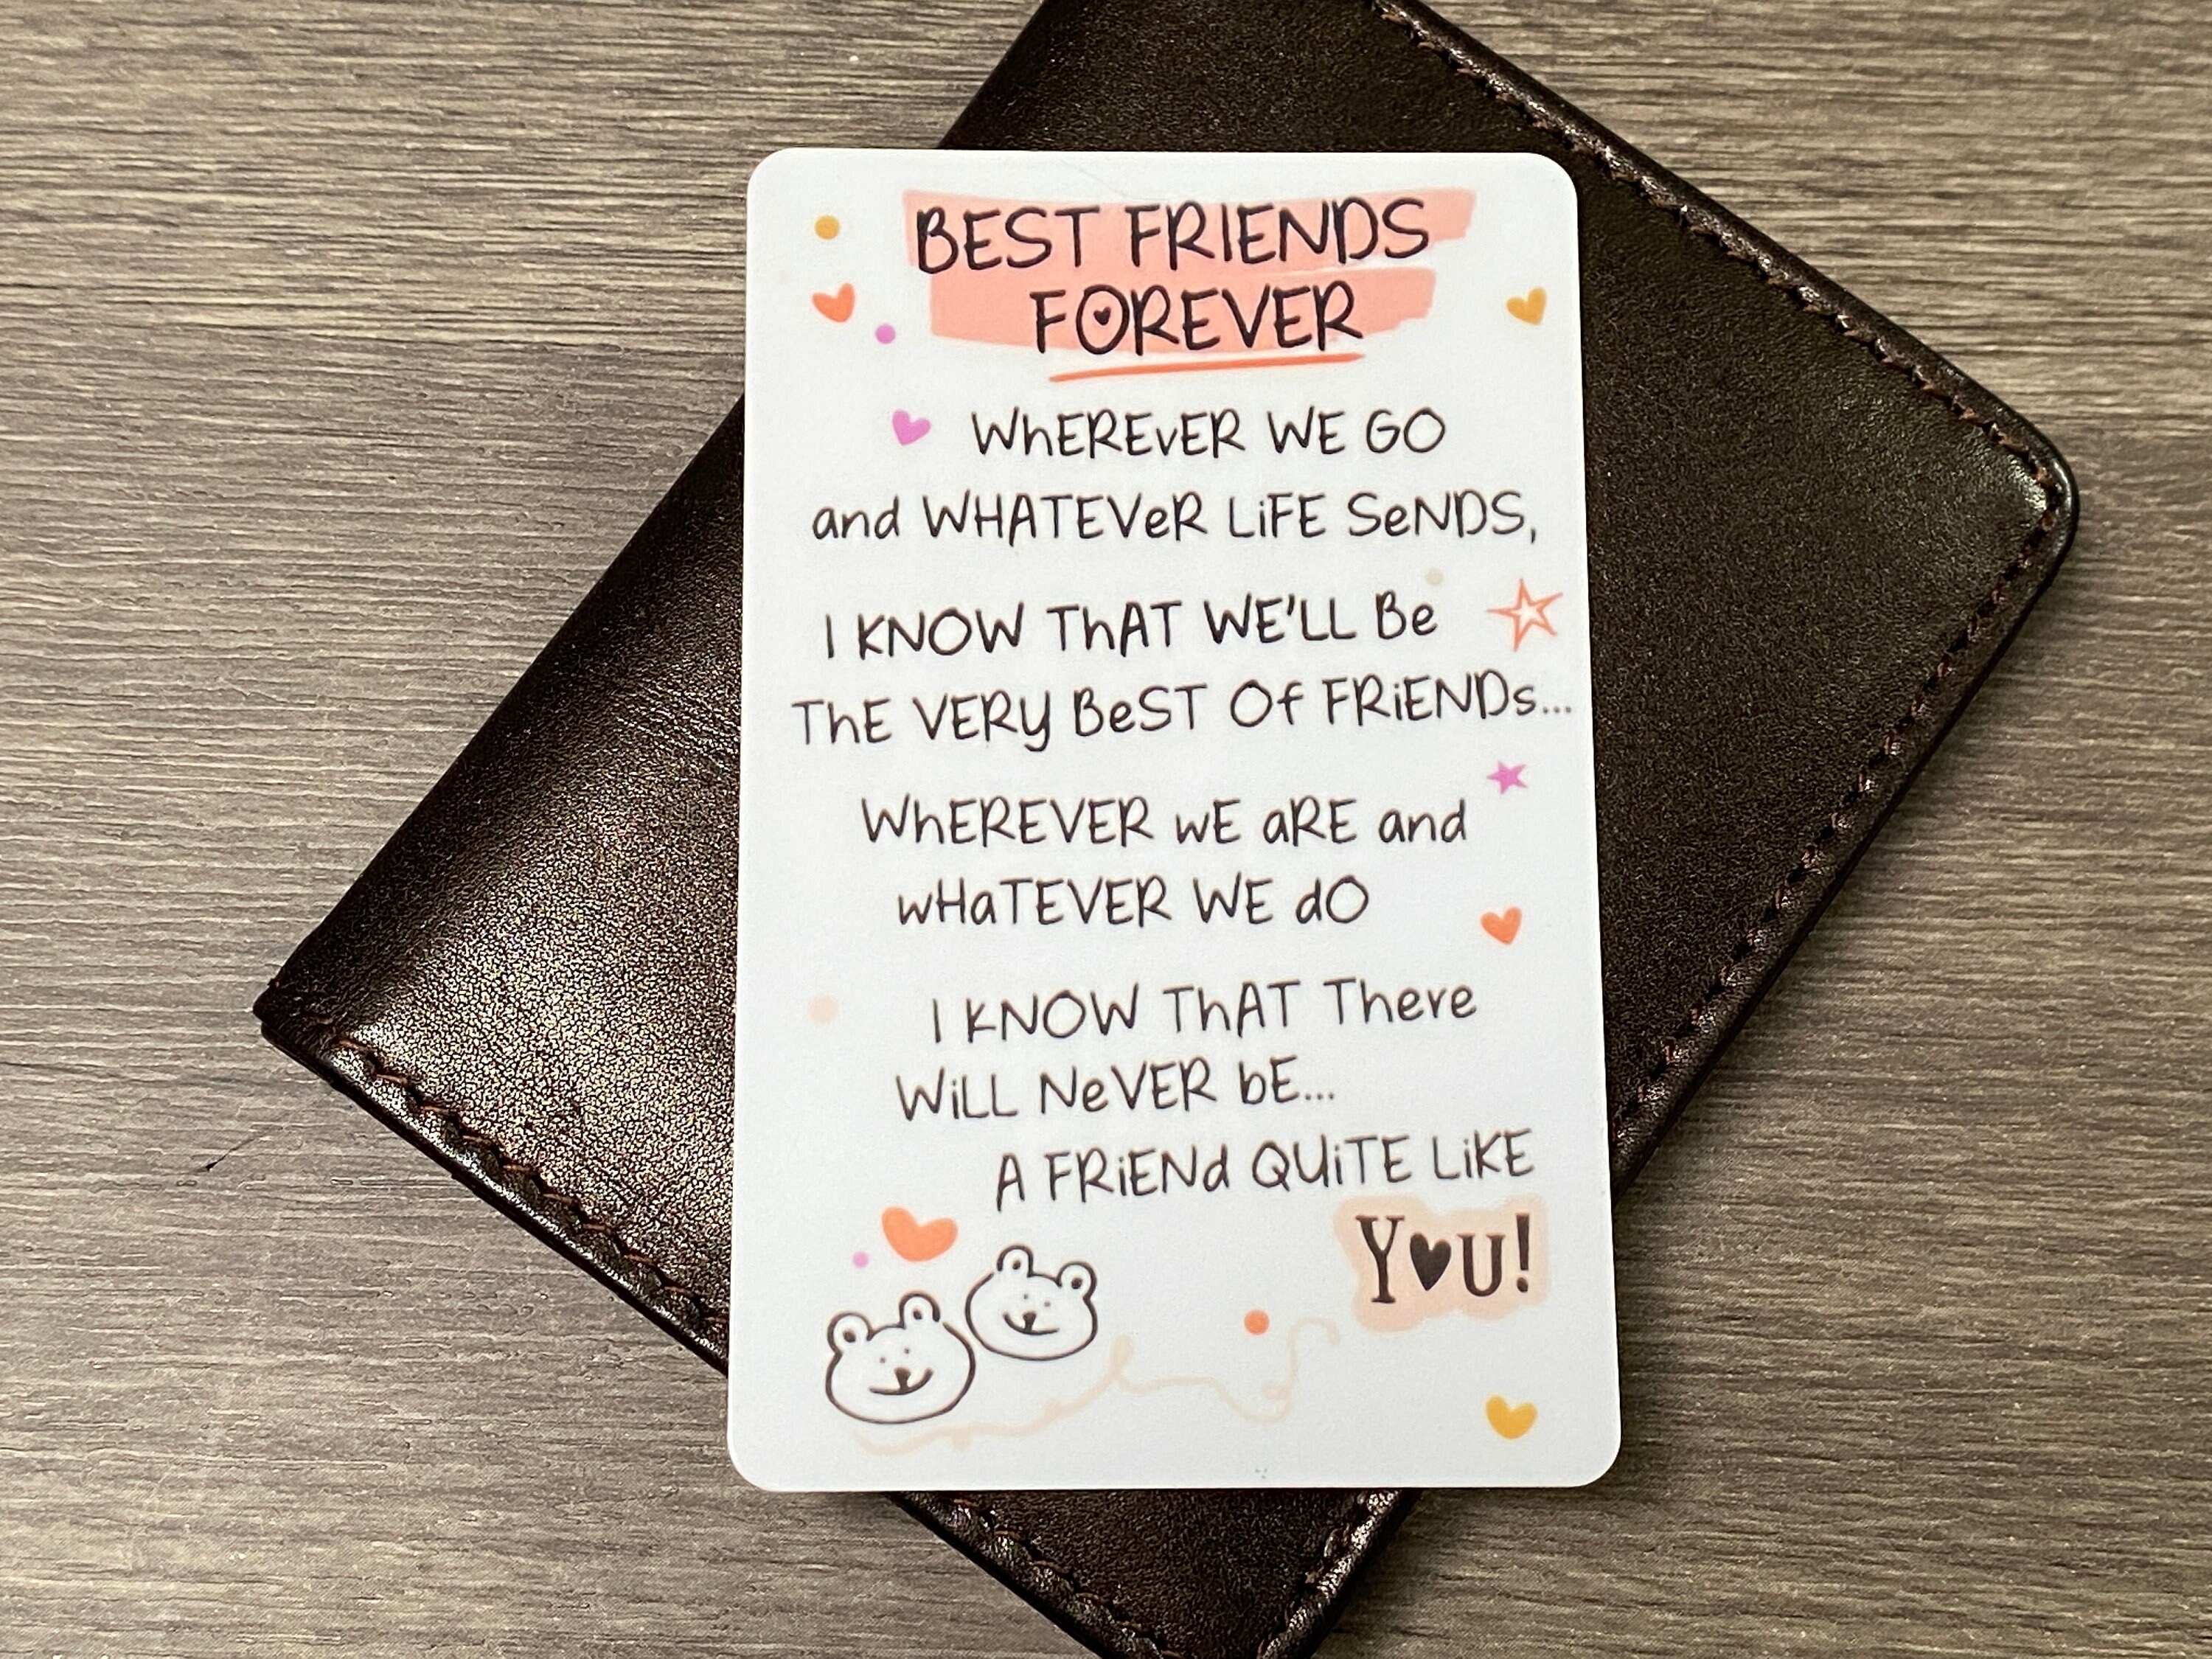 BEST FRIENDS
FOREVER
WhEREvER WE GO
and WHATEVeR LiFE SeNDS,
I KNOW ThAT WE'LL Be
ThE VERy BeST Of FRiENDs...
WhEREVER wE aRE and
wHaTEVER WE dO
I KNOW ThAT There
WiLL NeVER bE...
A FRiENd QUiTE LiKE
Y♥U!